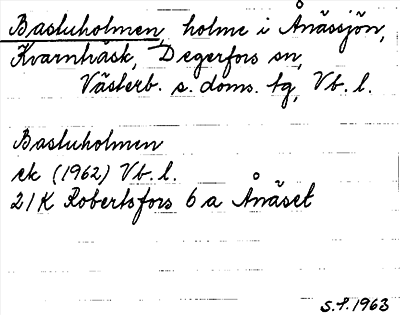 Bastuholmen, holme i Ånässjön,
Kvarnträsk, Degerfors sn,
Västerb. s. doms. tg, Vb. l.
Bastuholmen
ek (1962) Vb. l.
21K Robertsfors 6 a Ånäset
S.F. 1963